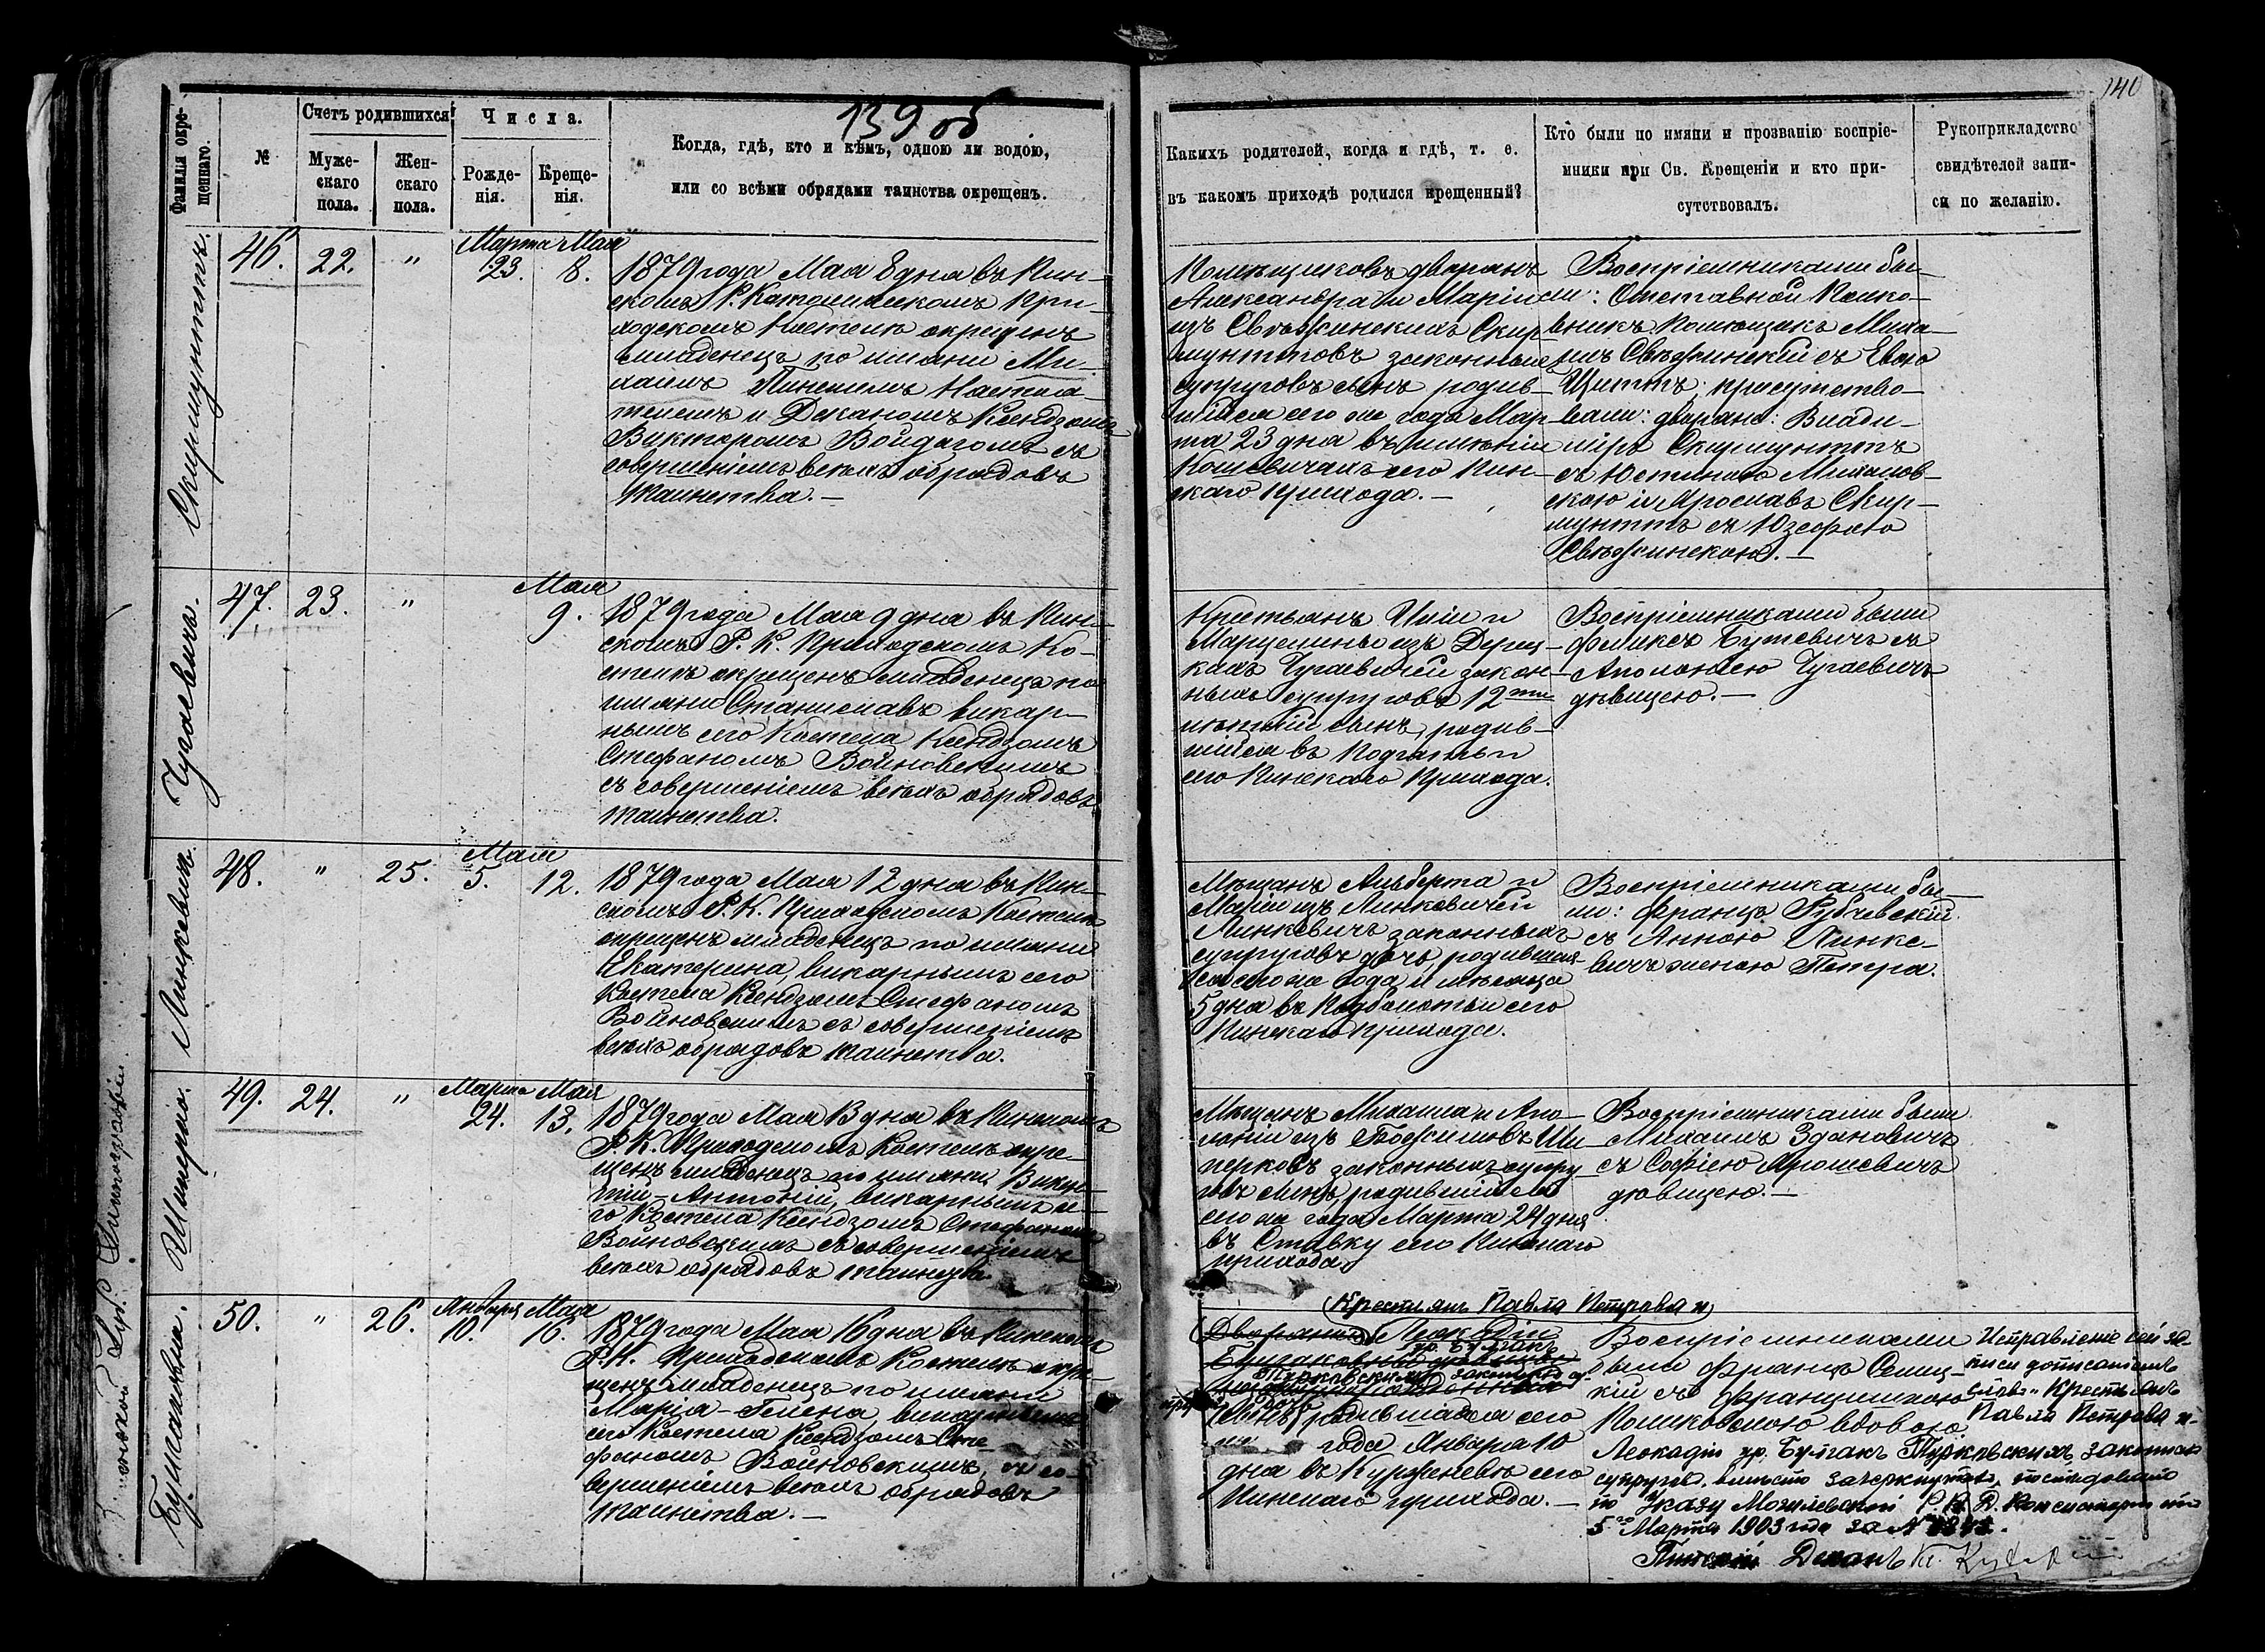 139 об
140
Фамилія окре-
щеннаго.
№
Счетъ родившихся
Муже-
скаго
пола.
Жен-
скаго
пола.
Числа.
Рожде-
нія.
Креще-
нія.
Когда, гдѣ, кто и кѣмъ, одною ли водою,
или со всѣми обрядами таинства окрещенъ.
Какихъ родителей, когда и гдѣ, т. е.
въ какомъ приходѣ родился крещенный?
Кто были по имяни и прозванію воспріе-
мники при Св. Крещеніи и кто при-
сутствовалъ.
Рукоприкладство
свидѣтелей запи-
си по желанію.
Скирмунттъ.
46.
22.
"
Марта Мая
23. 8.
1879 года Мая 8 дня въ Пин-
скомъ Р. Католическомъ При-
ходскомъ Костелѣ окрещенъ
младенецъ по имяни Ми-
хаилъ Пинскимъ Настоя-
телемъ и Деканомъ Ксендзомъ
Викторомъ Войдагомъ съ
совершеніемъ всѣхъ обрядовъ
таинства. —
Помѣщиковъ дворянъ
Александра и Маріи
изъ Свѣжинскихъ Скир-
мунттовъ законныхъ
супруговъ сынъ родив-
шійся сего же года Мар-
та 23 дня въ имѣніи
Кошевичахъ сего Пин-
скаго прихода. —
Воспріемниками бы-
ли: Отставной Полко-
вникъ Помѣщикъ Миха-
илъ Свѣжинскій съ Евою
Циттъ; присутство-
вали: дворяне: Влади-
міръ Скирмунттъ
съ Юстиною Михалов-
скою и Ярославъ Скир-
мунттъ съ Юзефою
Свѣжинскою. —
Чугаевичъ.
47.
23.
"
Мая
9.
1879 года Мая 9 дня въ Пин-
скомъ Р. К. Приходскомъ Ко-
стелѣ окрещенъ младенецъ по
имяни Станиславъ викар-
нымъ сего Костела Ксендзомъ
Стефаномъ Войновскимъ
съ совершеніемъ всѣхъ обрядовъ
таинства.
Крестьянъ и
Марцелины изъ
Чугаевичей закон-
ныхъ супруговъ 12ти
лѣтній сынъ, родив-
шійся въ
сего Пинскаго прихода.
Воспріемниками были
Феликсъ съ
Аполоніею Чугаевичъ
дѣвицею. —
Линкевичъ.
48.
"
25.
Мая
5. 12.
1879 года Мая 12 дня въ Пин-
скомъ Р. К. Приходскомъ Костелѣ
окрещенъ младенецъ по имяни
Екатерина, викарнымъ сего
Костела Ксендзомъ Стефаномъ
Войновскимъ съ совершеніемъ
всѣхъ обрядовъ таинства.
Мѣщанъ Альберта и
Маріи изъ Линковичей
Линкевичъ законныхъ
супруговъ дочь, родившая-
ся сего же года и мѣсяца
5 дня въ Подболотьи сего
Пинскаго прихода.
Воспріемниками бы-
ли: Францъ Рубчевскій
съ Анною Линке-
вичъ женою Петра.
Шиперко.
49.
24.
"
Марта Мая
24. 13.
1879 года Мая 13 дня въ Пинскомъ
Р. К. Приходскомъ Костелѣ окре-
щенъ младенецъ по имяни Викен-
тій-Антоній, викарнымъ се-
го Костела Ксендзомъ Стефаномъ
Войновскимъ съ совершеніемъ
всѣхъ обрядовъ таинства.
Мѣщанъ Михаила и Апо-
лоніи изъ Божимовъ Ши-
перковъ законныхъ супру-
говъ сынъ, родившійся
сего же года Марта 24 дня
въ Ставку сего Пинскаго
прихода.
Воспріемниками были
Михаилъ Здановичъ
съ Софіею Ярошевичъ
дѣвицею. —
50.
"
26.
Января Мая
10. 16.
1879 года Мая 16 дня въ Пинскомъ
Р. К. Приходскомъ Костелѣ окре-
щенъ младенецъ по имяни
Марія-Гелена, викарнымъ
сего Костела Ксендзомъ Сте-
фаномъ Войновскимъ, съ со-
вершеніемъ всѣхъ обрядовъ
таинства. —
(Крестьянъ Павла Петрова и)
Леокадіи
ур. Булгакъ
законныхъ су-
дочь
родившаяся сего
же года Января 10
дня въ Куржелевѣ сего
Пинскаго прихода. —
Воспріемниками
были Францъ
кій съ Францишкою
вдовою.
Исправленіе сей за-
писи дописаніемъ
словъ „Крестьянъ
Павла Петрова и
Леокадіи ур. Булгакъ законныхъ
супруговъ вмѣсто зачеркнутыхъ, послѣдовало
по Указу Могилевской Р. К. Д. Консисторіи отъ
5го Марта 1903 года за №
Пинскій Деканъ Кс.